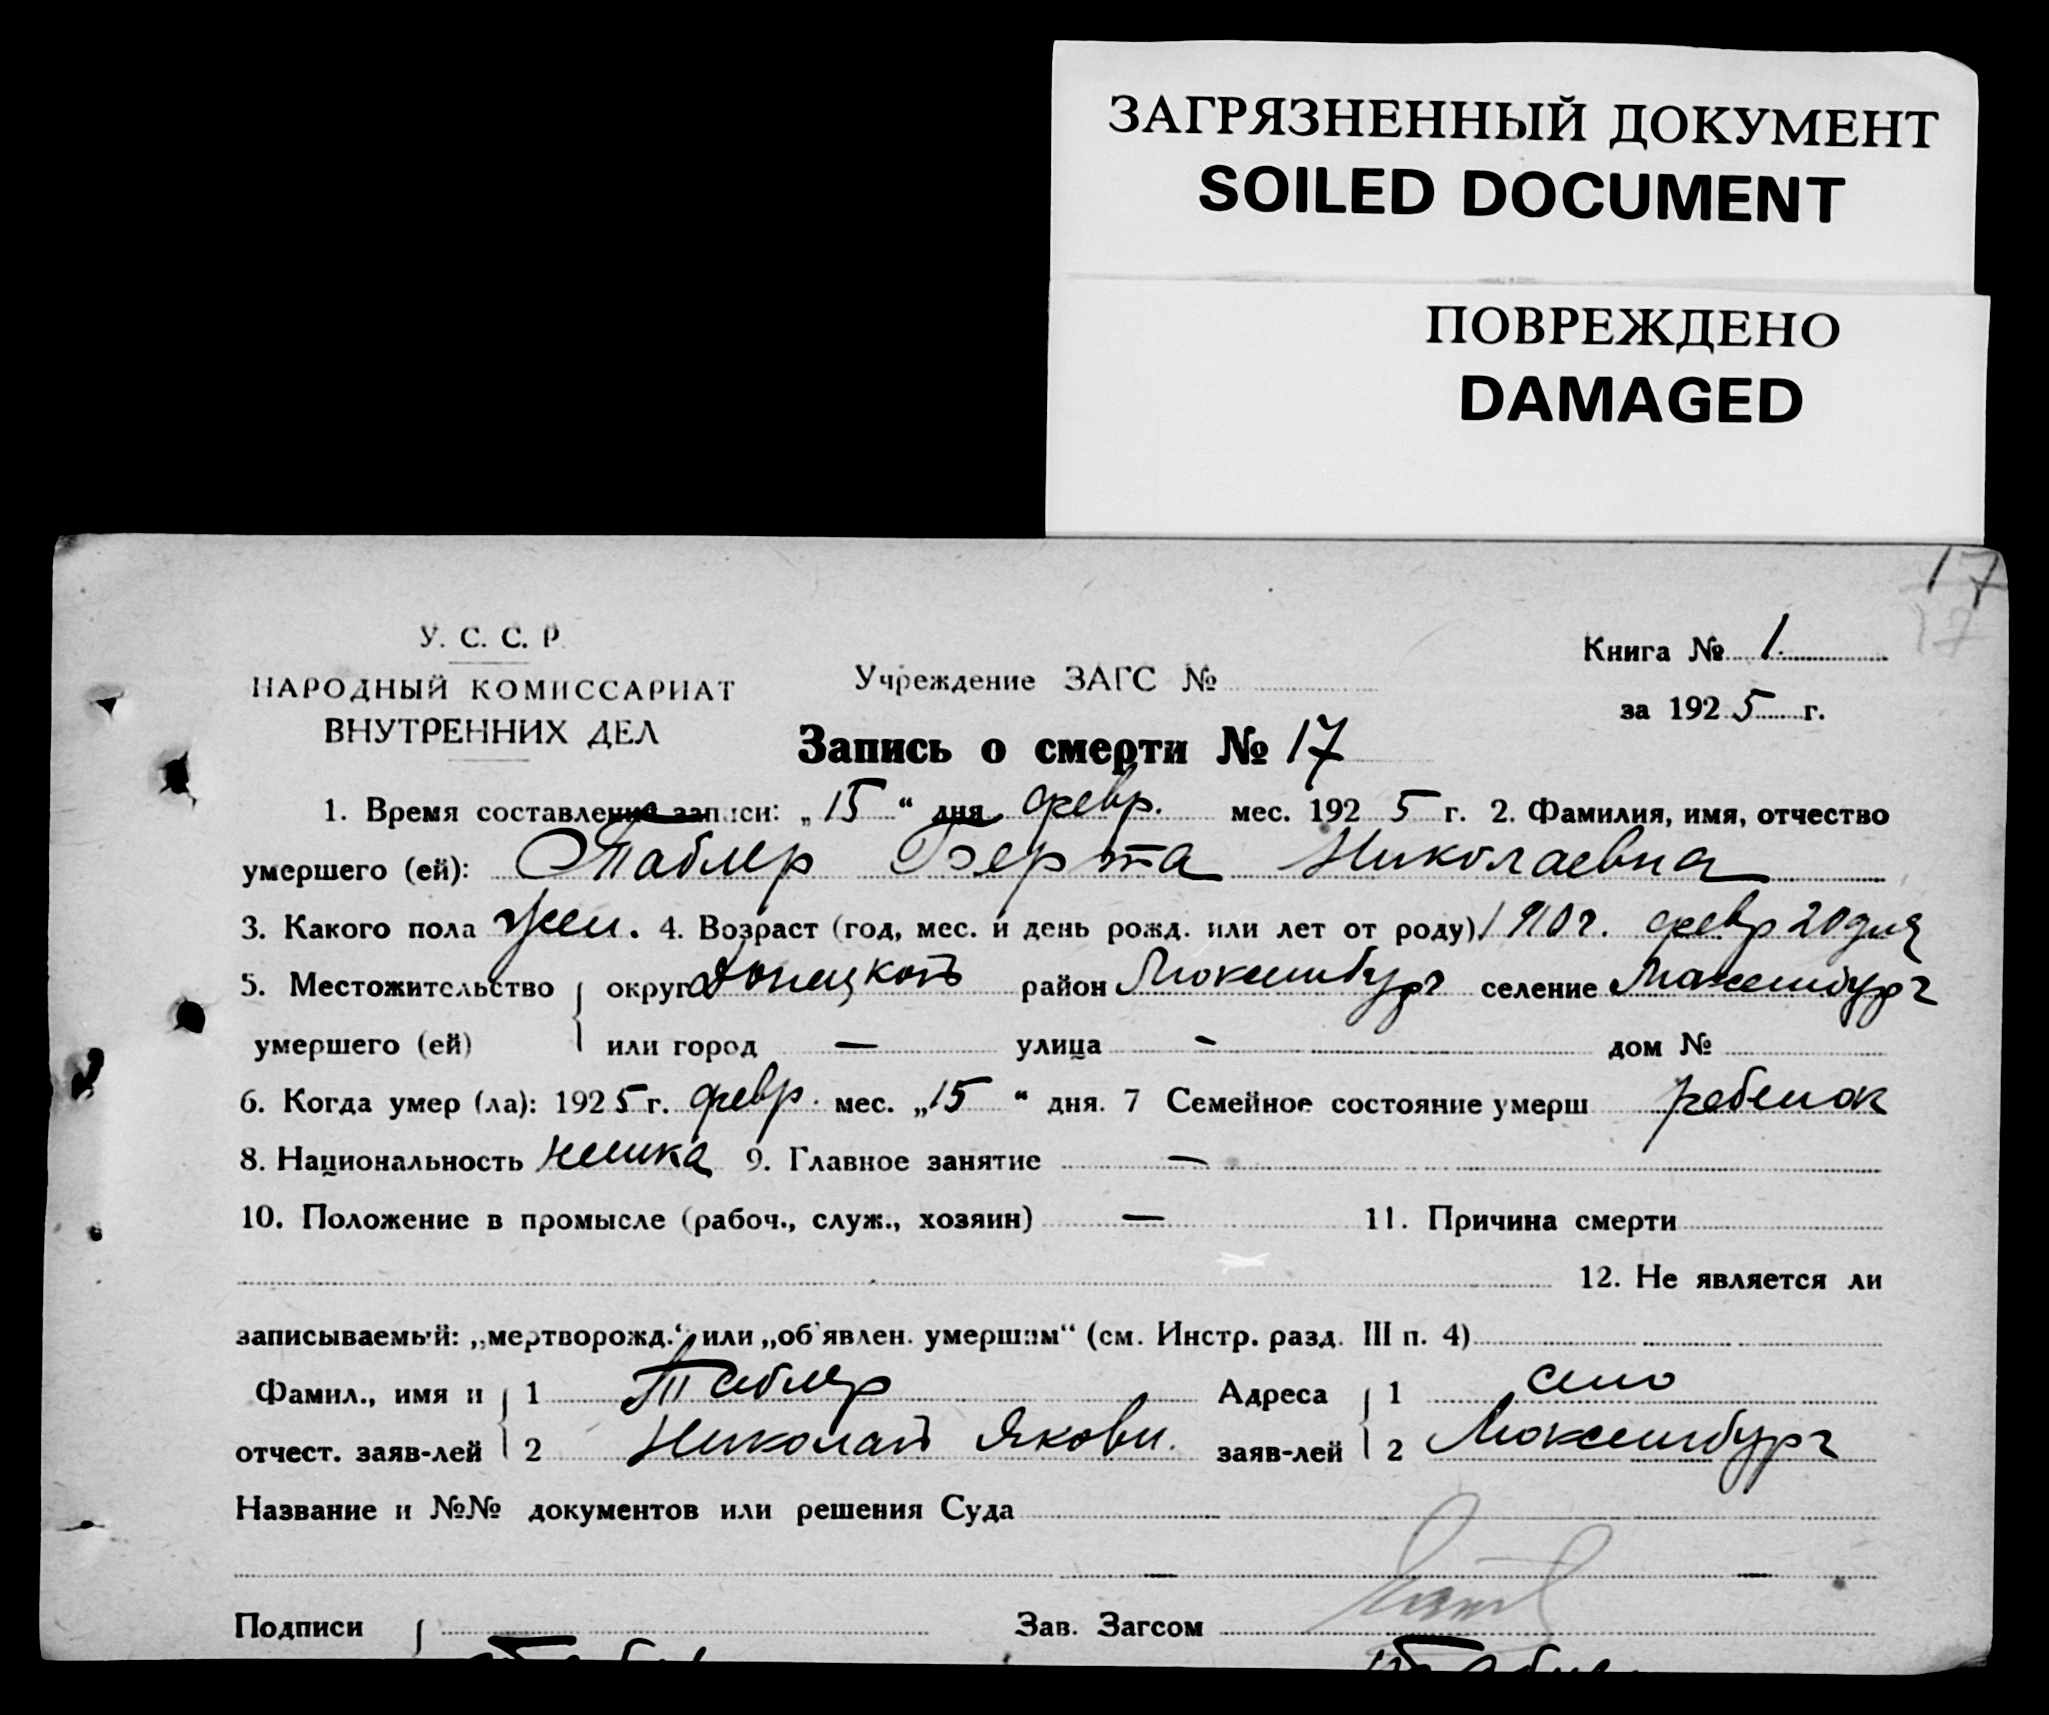 ЗАГРЯЗНЕННЫЙ ДОКУМЕНТ
SOILED DOCUMENT
ПОВРЕЖДЕНО
DAMAGED
17
17
У. С. С. Р.
НАРОДНЫЙ КОМИССАРИАТ
ВНУТРЕННИХ ДЕЛ
Учреждение ЗАГС №
Книга № 1.
за 1925 г.
Запись о смерти № 17
1. Время составления записи: „15“ дня февр. мес. 1925 г. 2. Фамилия, имя, отчество
умершего (ей): Таблер Берта Николаевна
3. Какого пола жен. 4. Возраст (год, мес. и день рожд. или лет от роду) 1910 г. февр 20 дня
5. Местожительство округ Донецкой район Люксембург селение Люксембург
умершего (ей) или город — улица - дом №
6. Когда умер (ла): 1925 г. февр. мес. „15“ дня. 7 Семейное состояние умерш ребенок
8. Национальность немка 9. Главное занятие —
10. Положение в промысле (рабоч., служ., хозяин) — 11. Причина смерти
12. Не является ли
записываемый: „мертворожд.“ или „об'явлен. умершим“ (см. Инстр. разд. III п. 4)
Фамил., имя и 1 Таблер Адреса 1 село
отчест. заяв-лей 2 Николай Якови. заяв-лей 2 Люксембург
Название и №№ документов или решения Суда
Подписи Зав. Загсом